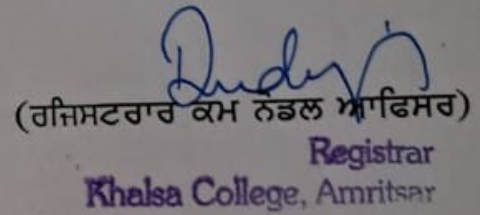 (ਰਜਿਸਟਰਾਰ ਕਮ ਨੋਡਲ ਆਫਿਸਰ)
Registrar
Khalsa College, Amritsar